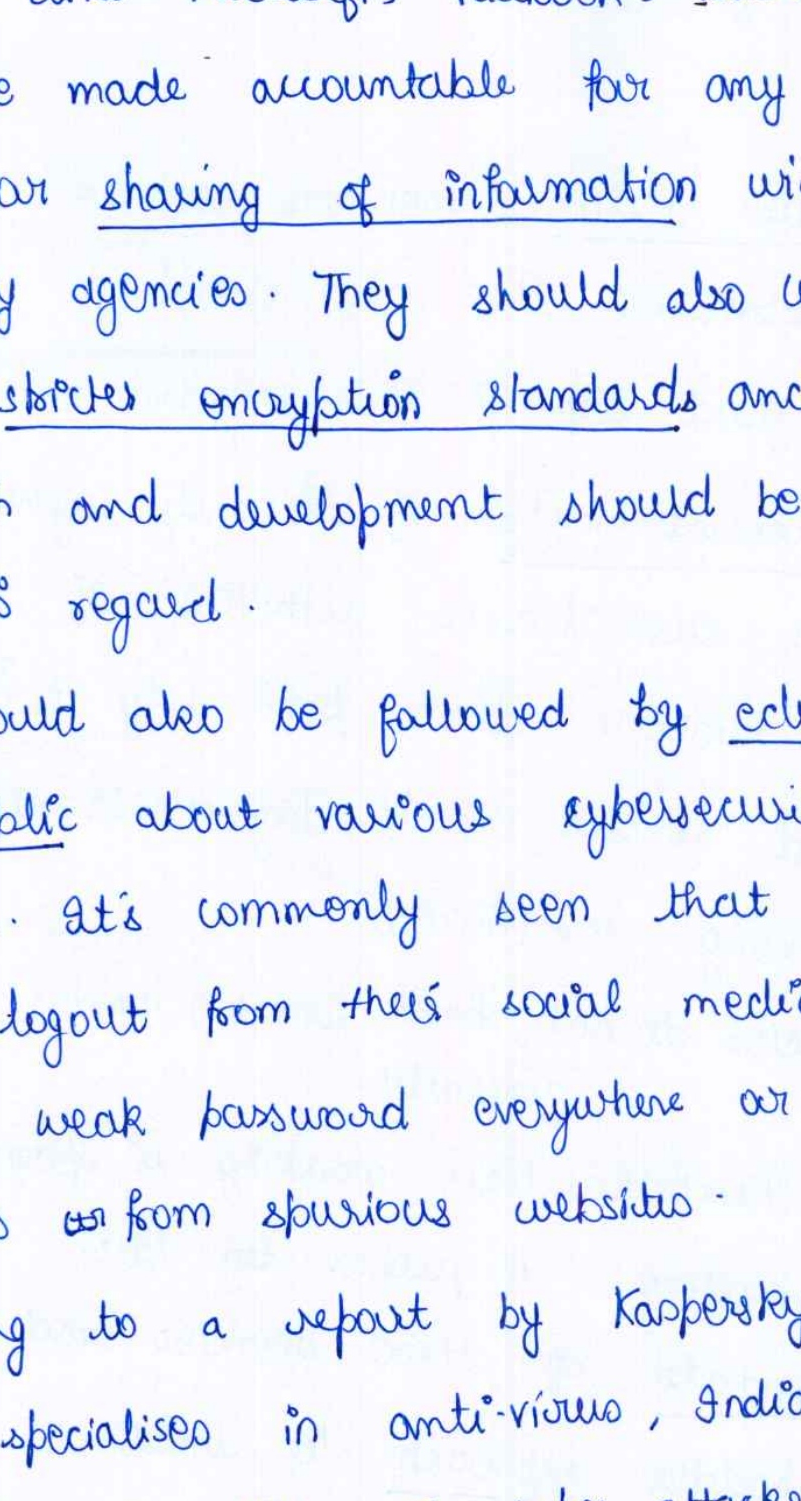 made accountable for any
or sharing of information
agencies. They should also
stricter encryption standards
and development should be
regard.
also be followed by
about various
. It's commonly seen that
logout from their social
weak password everywhere or
from spurious websites.
to a report by Kaspersky
specialises in anti-virus,